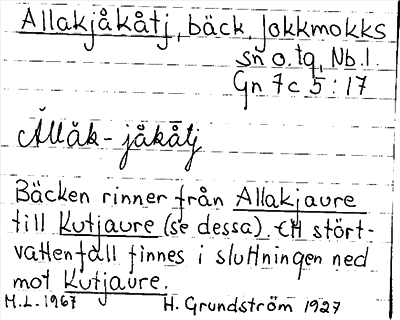 Allakjåkåtj, bäck, Jokkmokks
sn o. tg, Nb.l.
Gn 7c 5:17
Ållåk-jåkåtj
Bäcken rinner från Allakjaure
till Kutjaure (se dessa). Ett stört-
vattenfall finnes i sluttningen ned
mot Kutjaure.
M.L. 1967 H. Grundström 1927